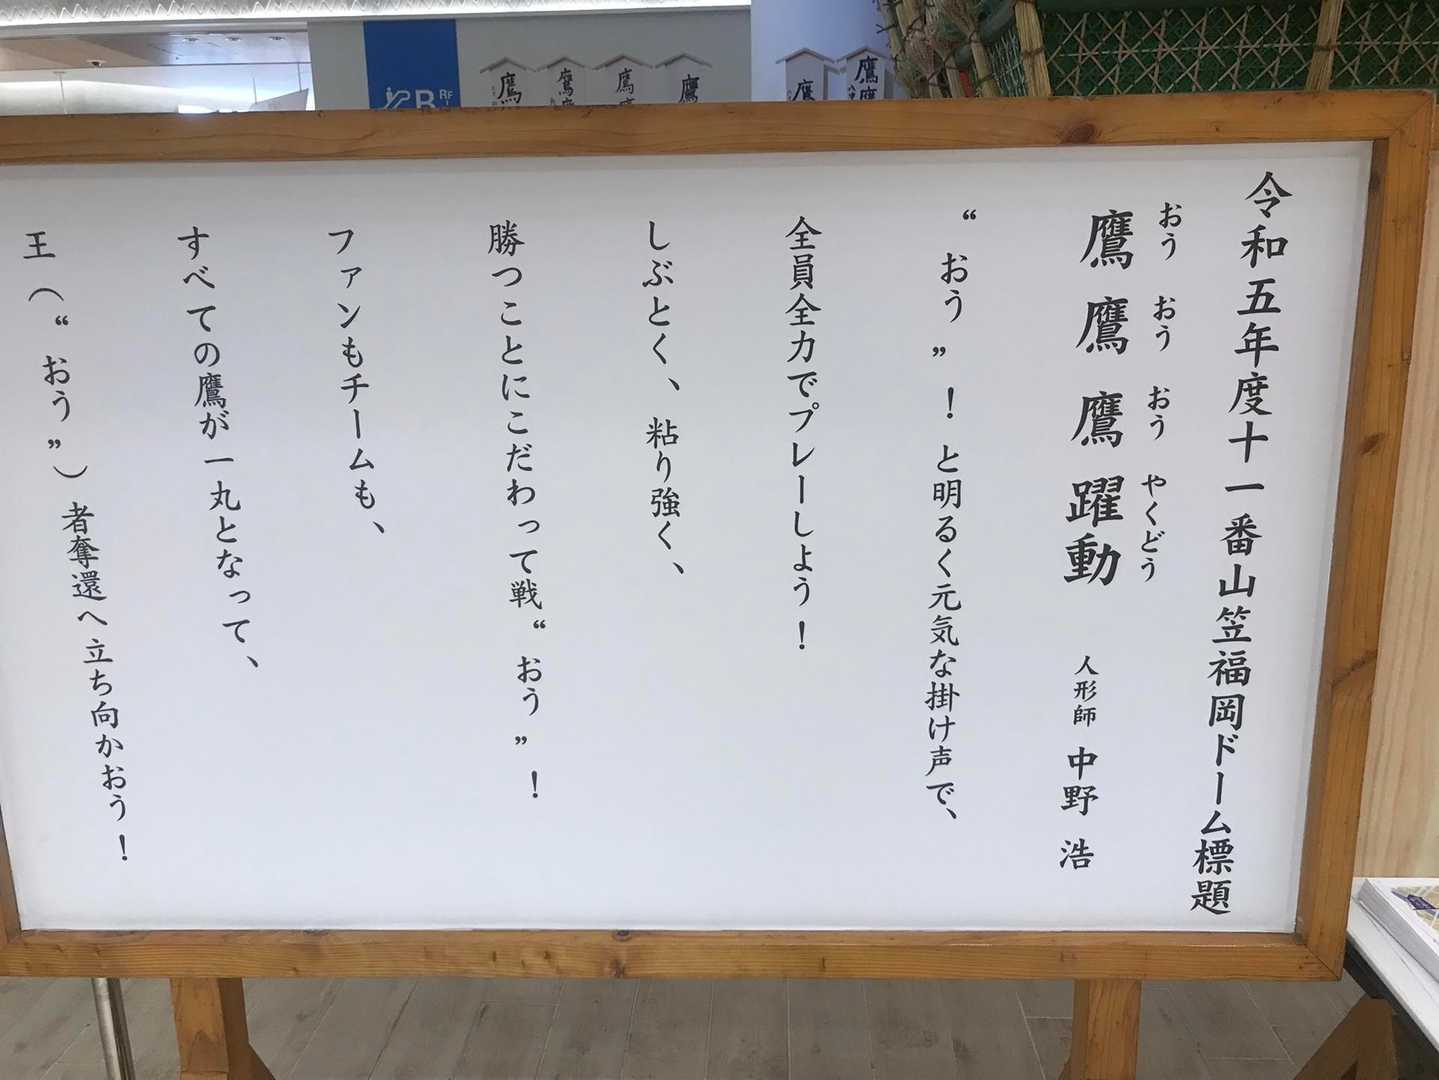 令和五年度十一番山笠福岡ドーム標題
おう おう おう やくどう
鷹鷹鷹躍動 人形師 中野 浩
“おう”！と明るく元気な掛け声で、
全員全力でプレーしよう！
しぶとく、粘り強く、
勝つことにこだわって戦“おう”！
ファンもチームも、
すべての鷹が一丸となって、
王（“おう”）者奪還へ立ち向かおう！